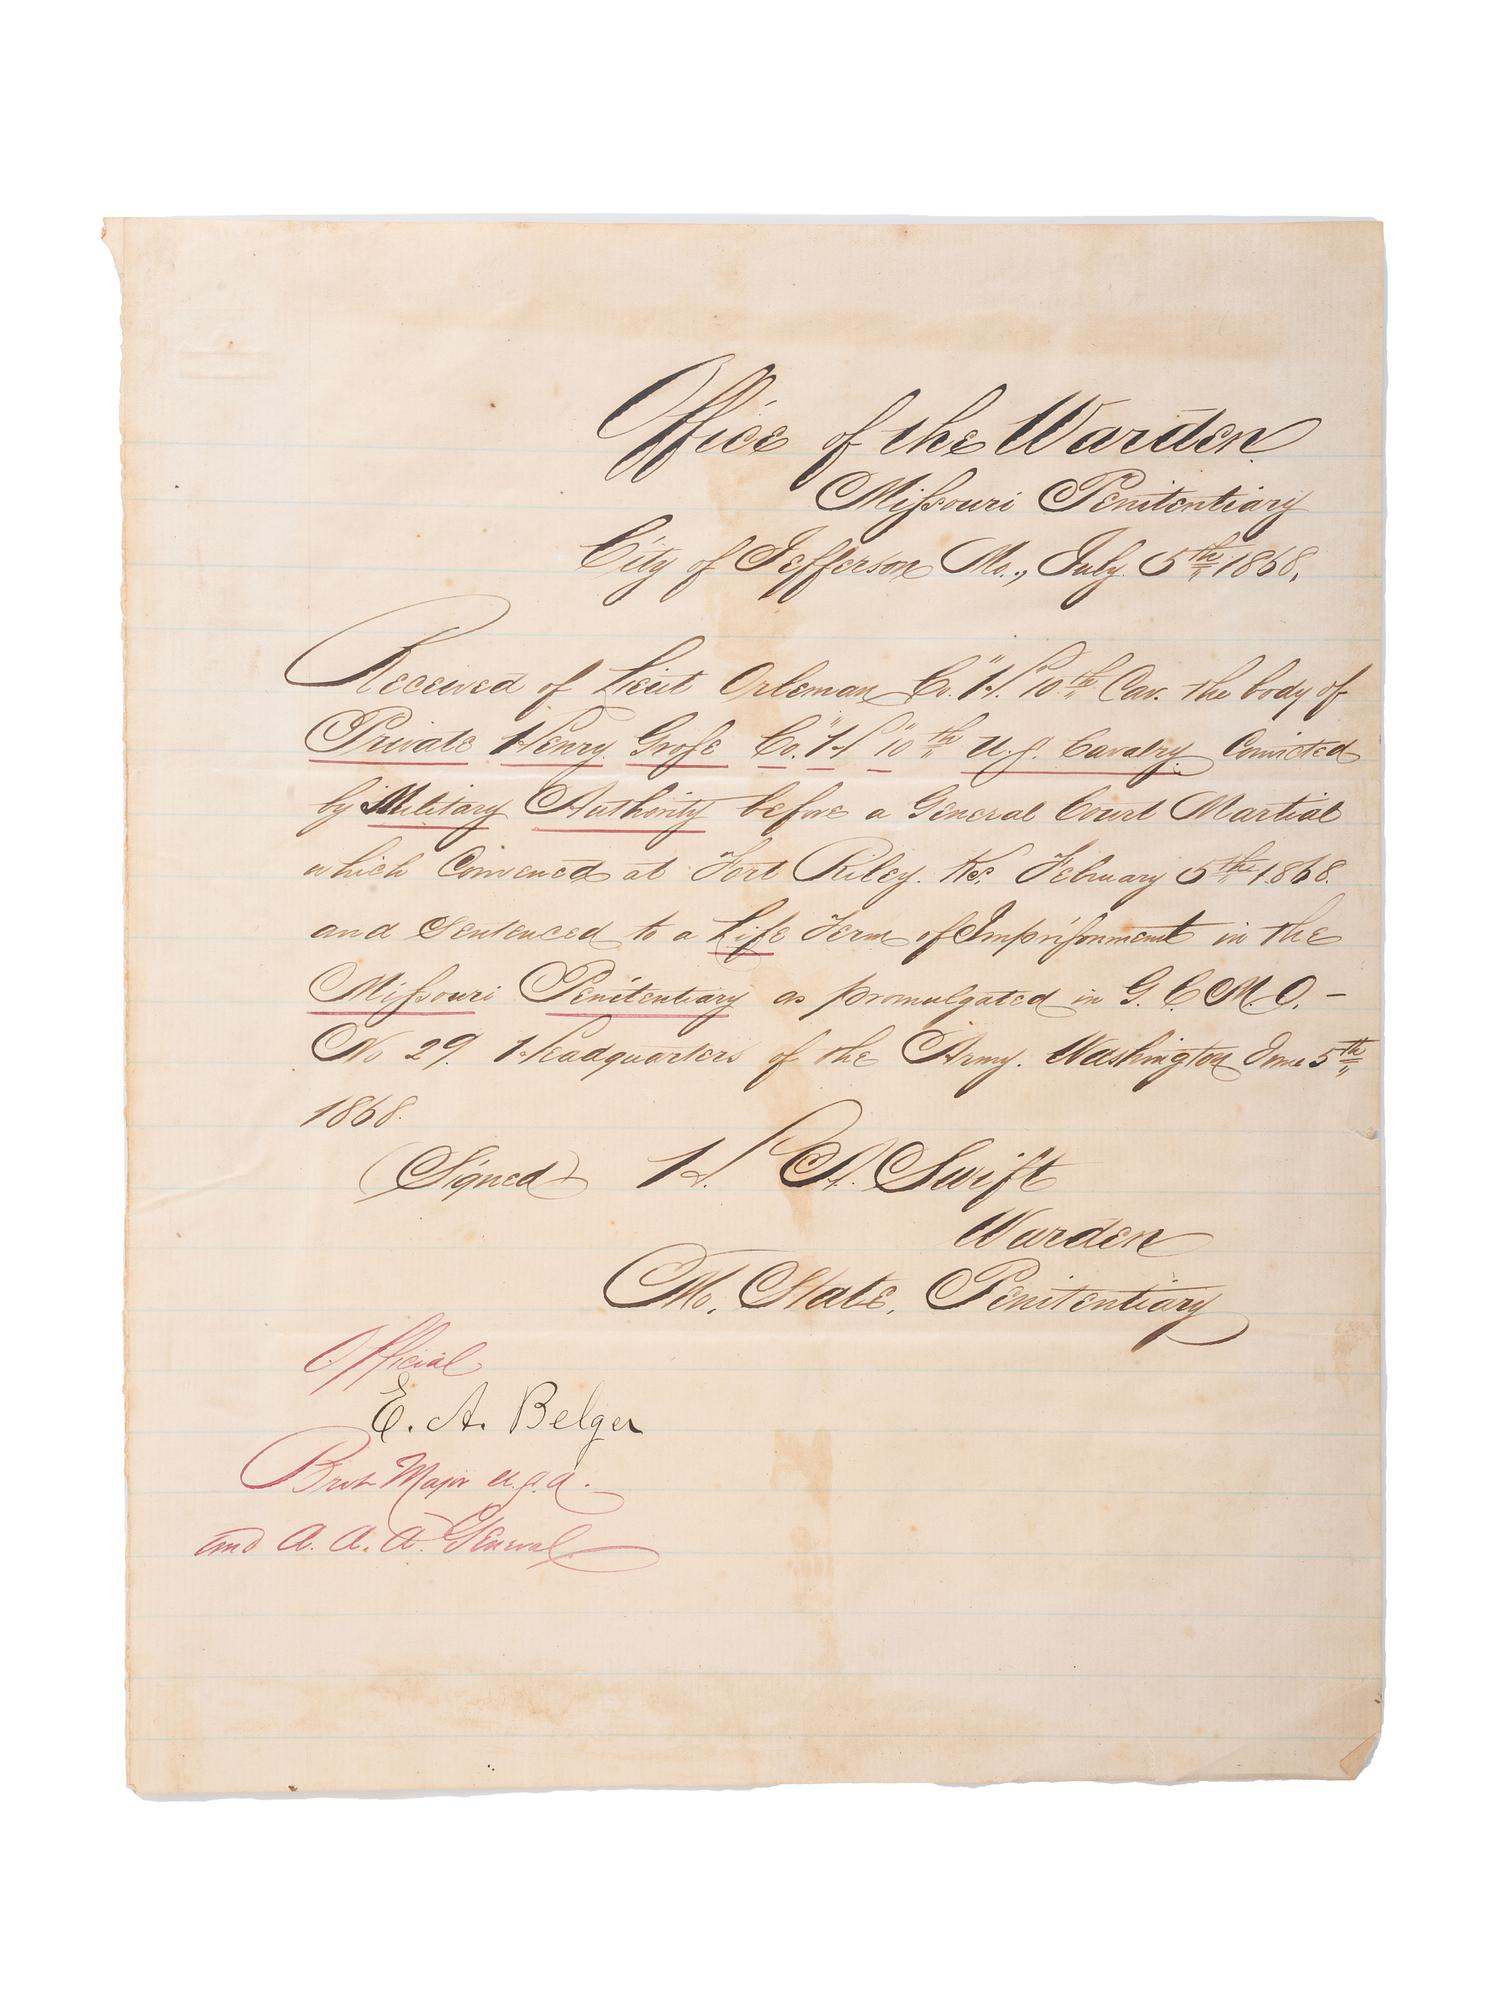 Office of the Warden
Missouri Penitentiary
City of Jefferson Mo., July 5th 1868.
Received of Lieut Orleman Co. "H" 10th Cav. the body of
Private Henry Grofe Co. "H" 10th U.S. Cavalry Convicted
by Military Authority before a General Court Martial
which Convened at Fort Riley. Ks. February 5th 1868.
and Sentenced to a Life Term of Imprisonment in the
Missouri Penitentiary as promulgated in G. C. M. O. –
No 29. Headquarters of the Army. Washington June 5th
1868.
(Signed) H. A. Swift
Warden
Mo. State. Penitentiary
Official
E. A. Belger
Brvt Major U.S.A.
and A. A. A. General